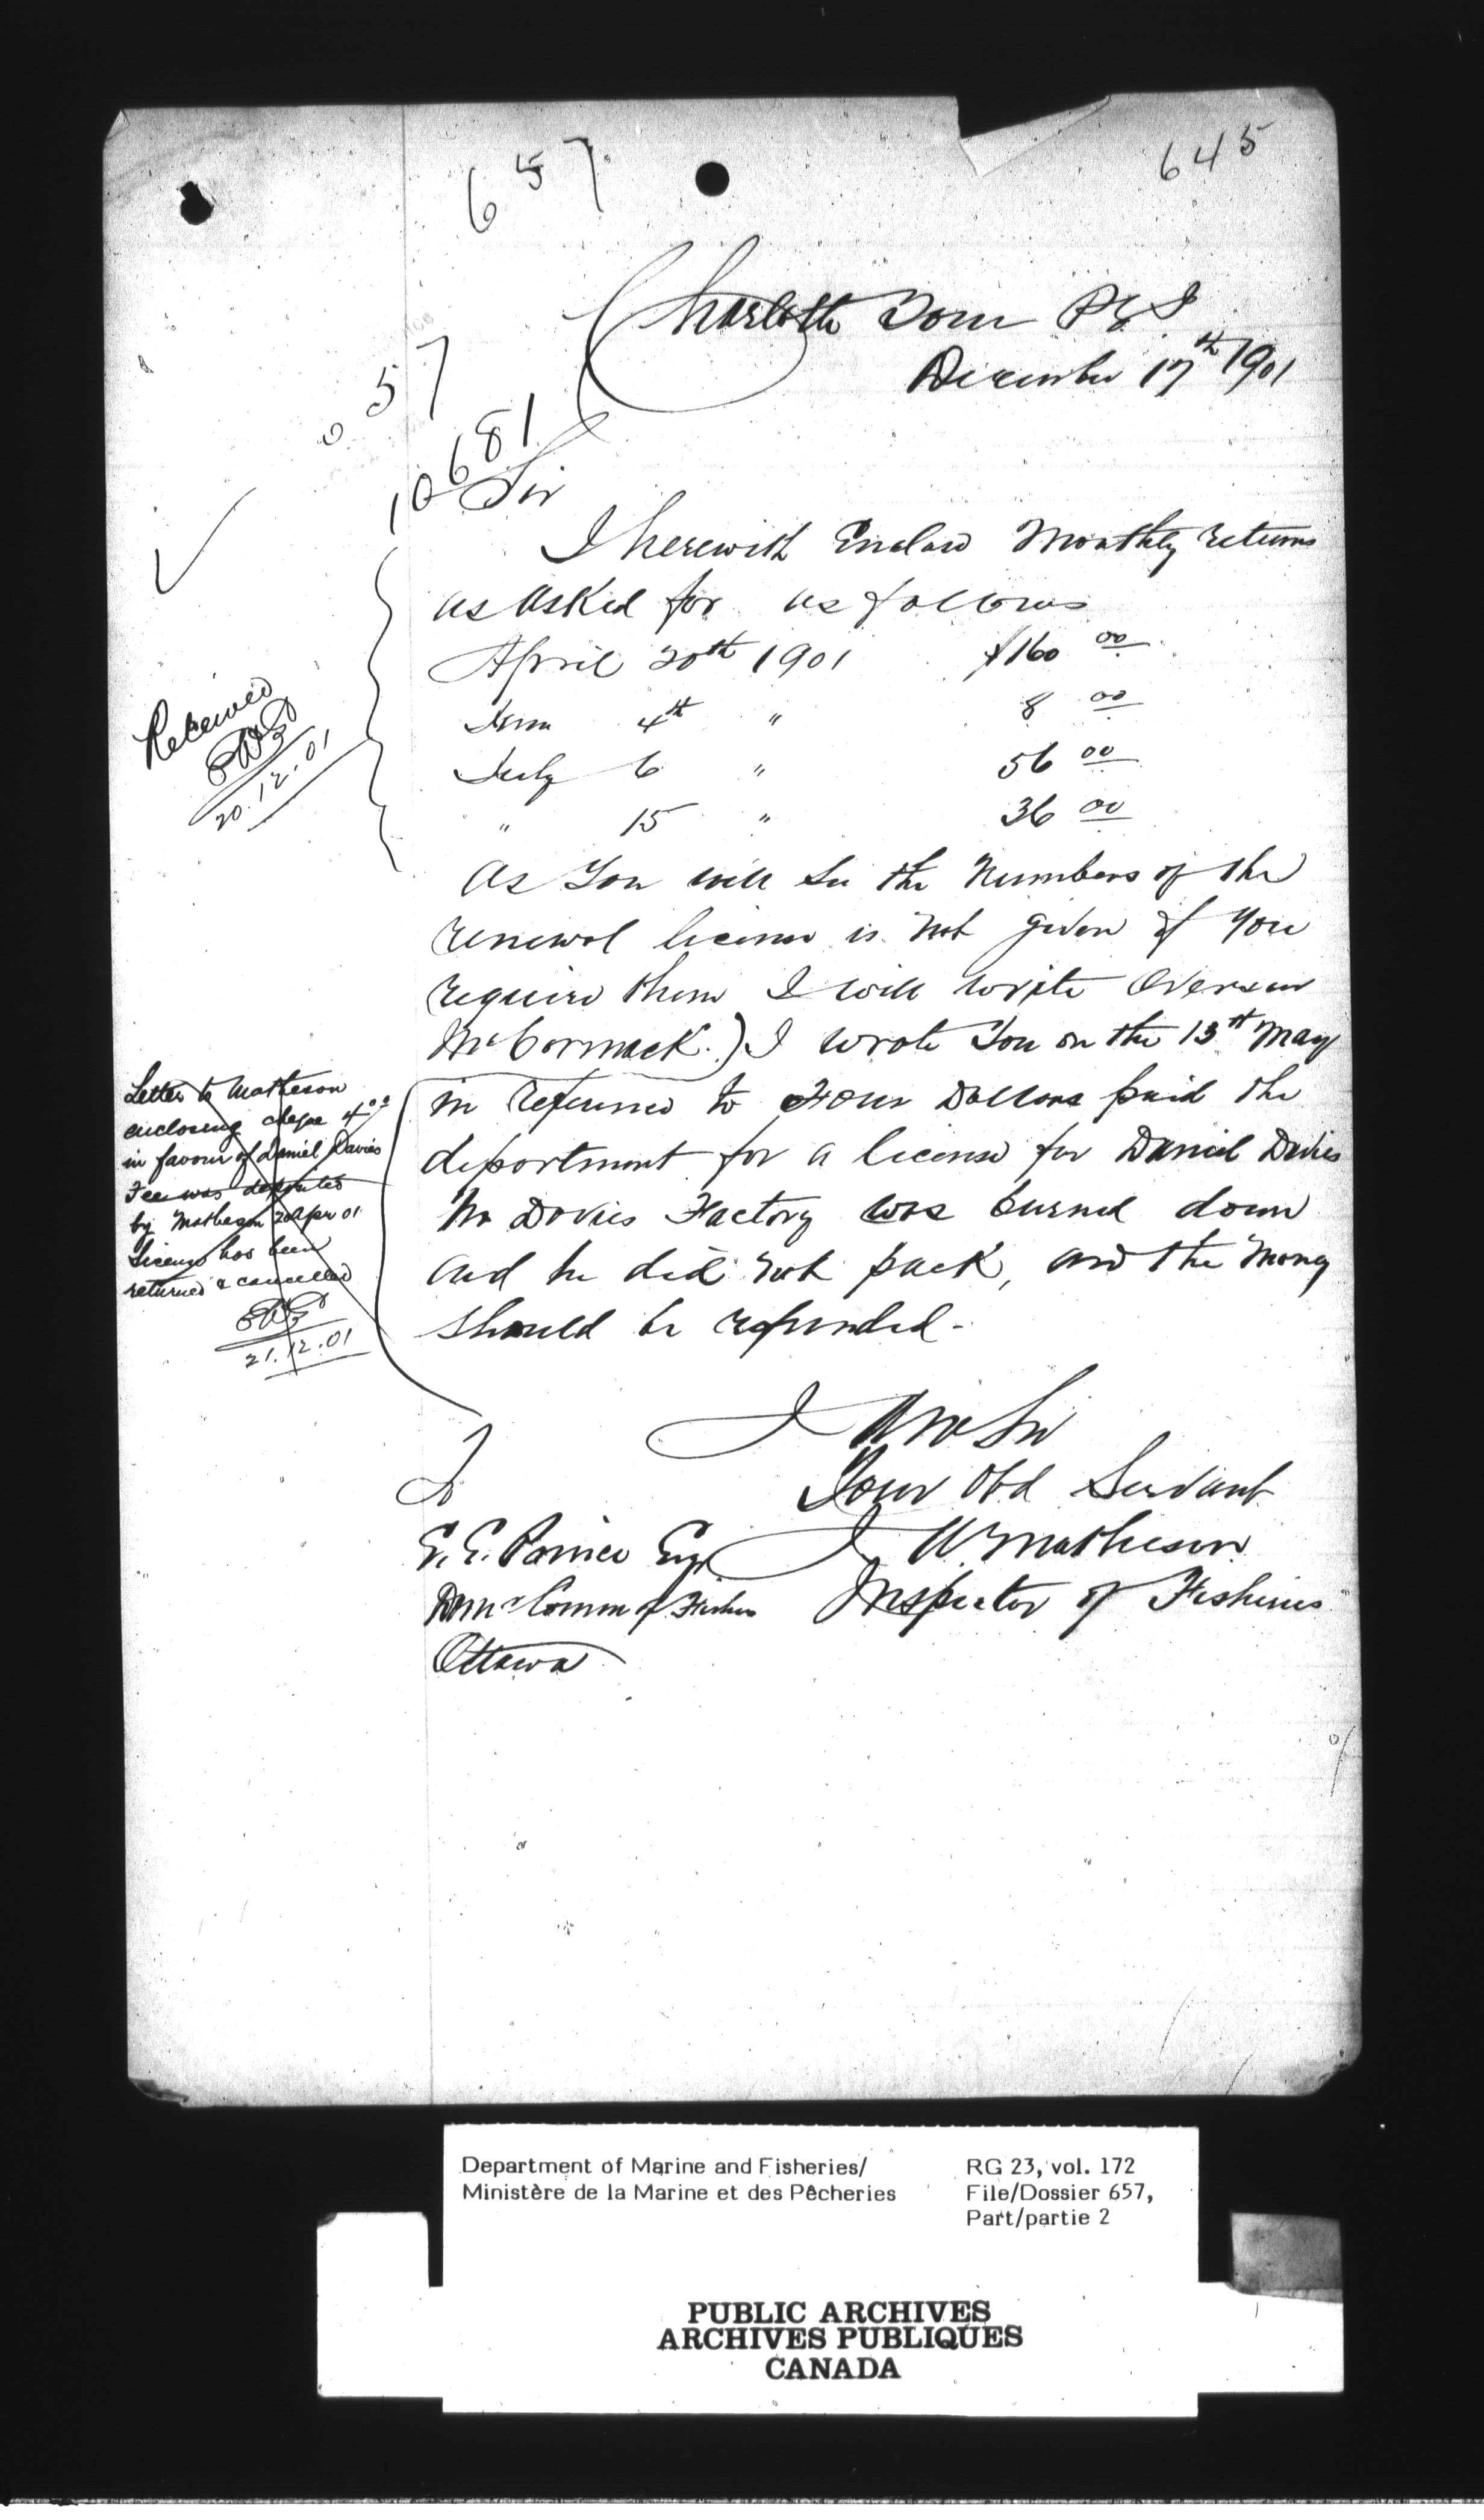 645
657
Charlotte Town P E I
December 17th 1901
657
10681
Sir
I herewith Enclose Monthly returns
as asked for as follows
April 20th 1901 $160 00
June 4th " 8 00
July 6 " 56 00
" 15 " 36 00
Received
20.12.01
As You will See the Numbers of the
renewal license is not given if you
require them I will write Overseer
McCormack.) I wrote You on the 13th May
in reference to Four Dollars paid the
department for a license for Daniel Davies
Mr Davies Factory was burned down
and he did not pack, and the money
should be refunded-
Letter to Matheson
enclosing cheque 4.00
in favour of Daniel Davies
Fee was deposited
by Matheson 20 Apr 01
License has been
returned & cancelled
21.12.01
I Am Sir
Your Obd Servant
J A Matheson
Inspector of Fisheries
To
E. E. Prince Esq
Domn Comm of Fisheries
Ottawa
Department of Marine and Fisheries/
Ministère de la Marine et des Pêcheries
RG 23, vol. 172
File/Dossier 657,
Part/partie 2
PUBLIC ARCHIVES
ARCHIVES PUBLIQUES
CANADA